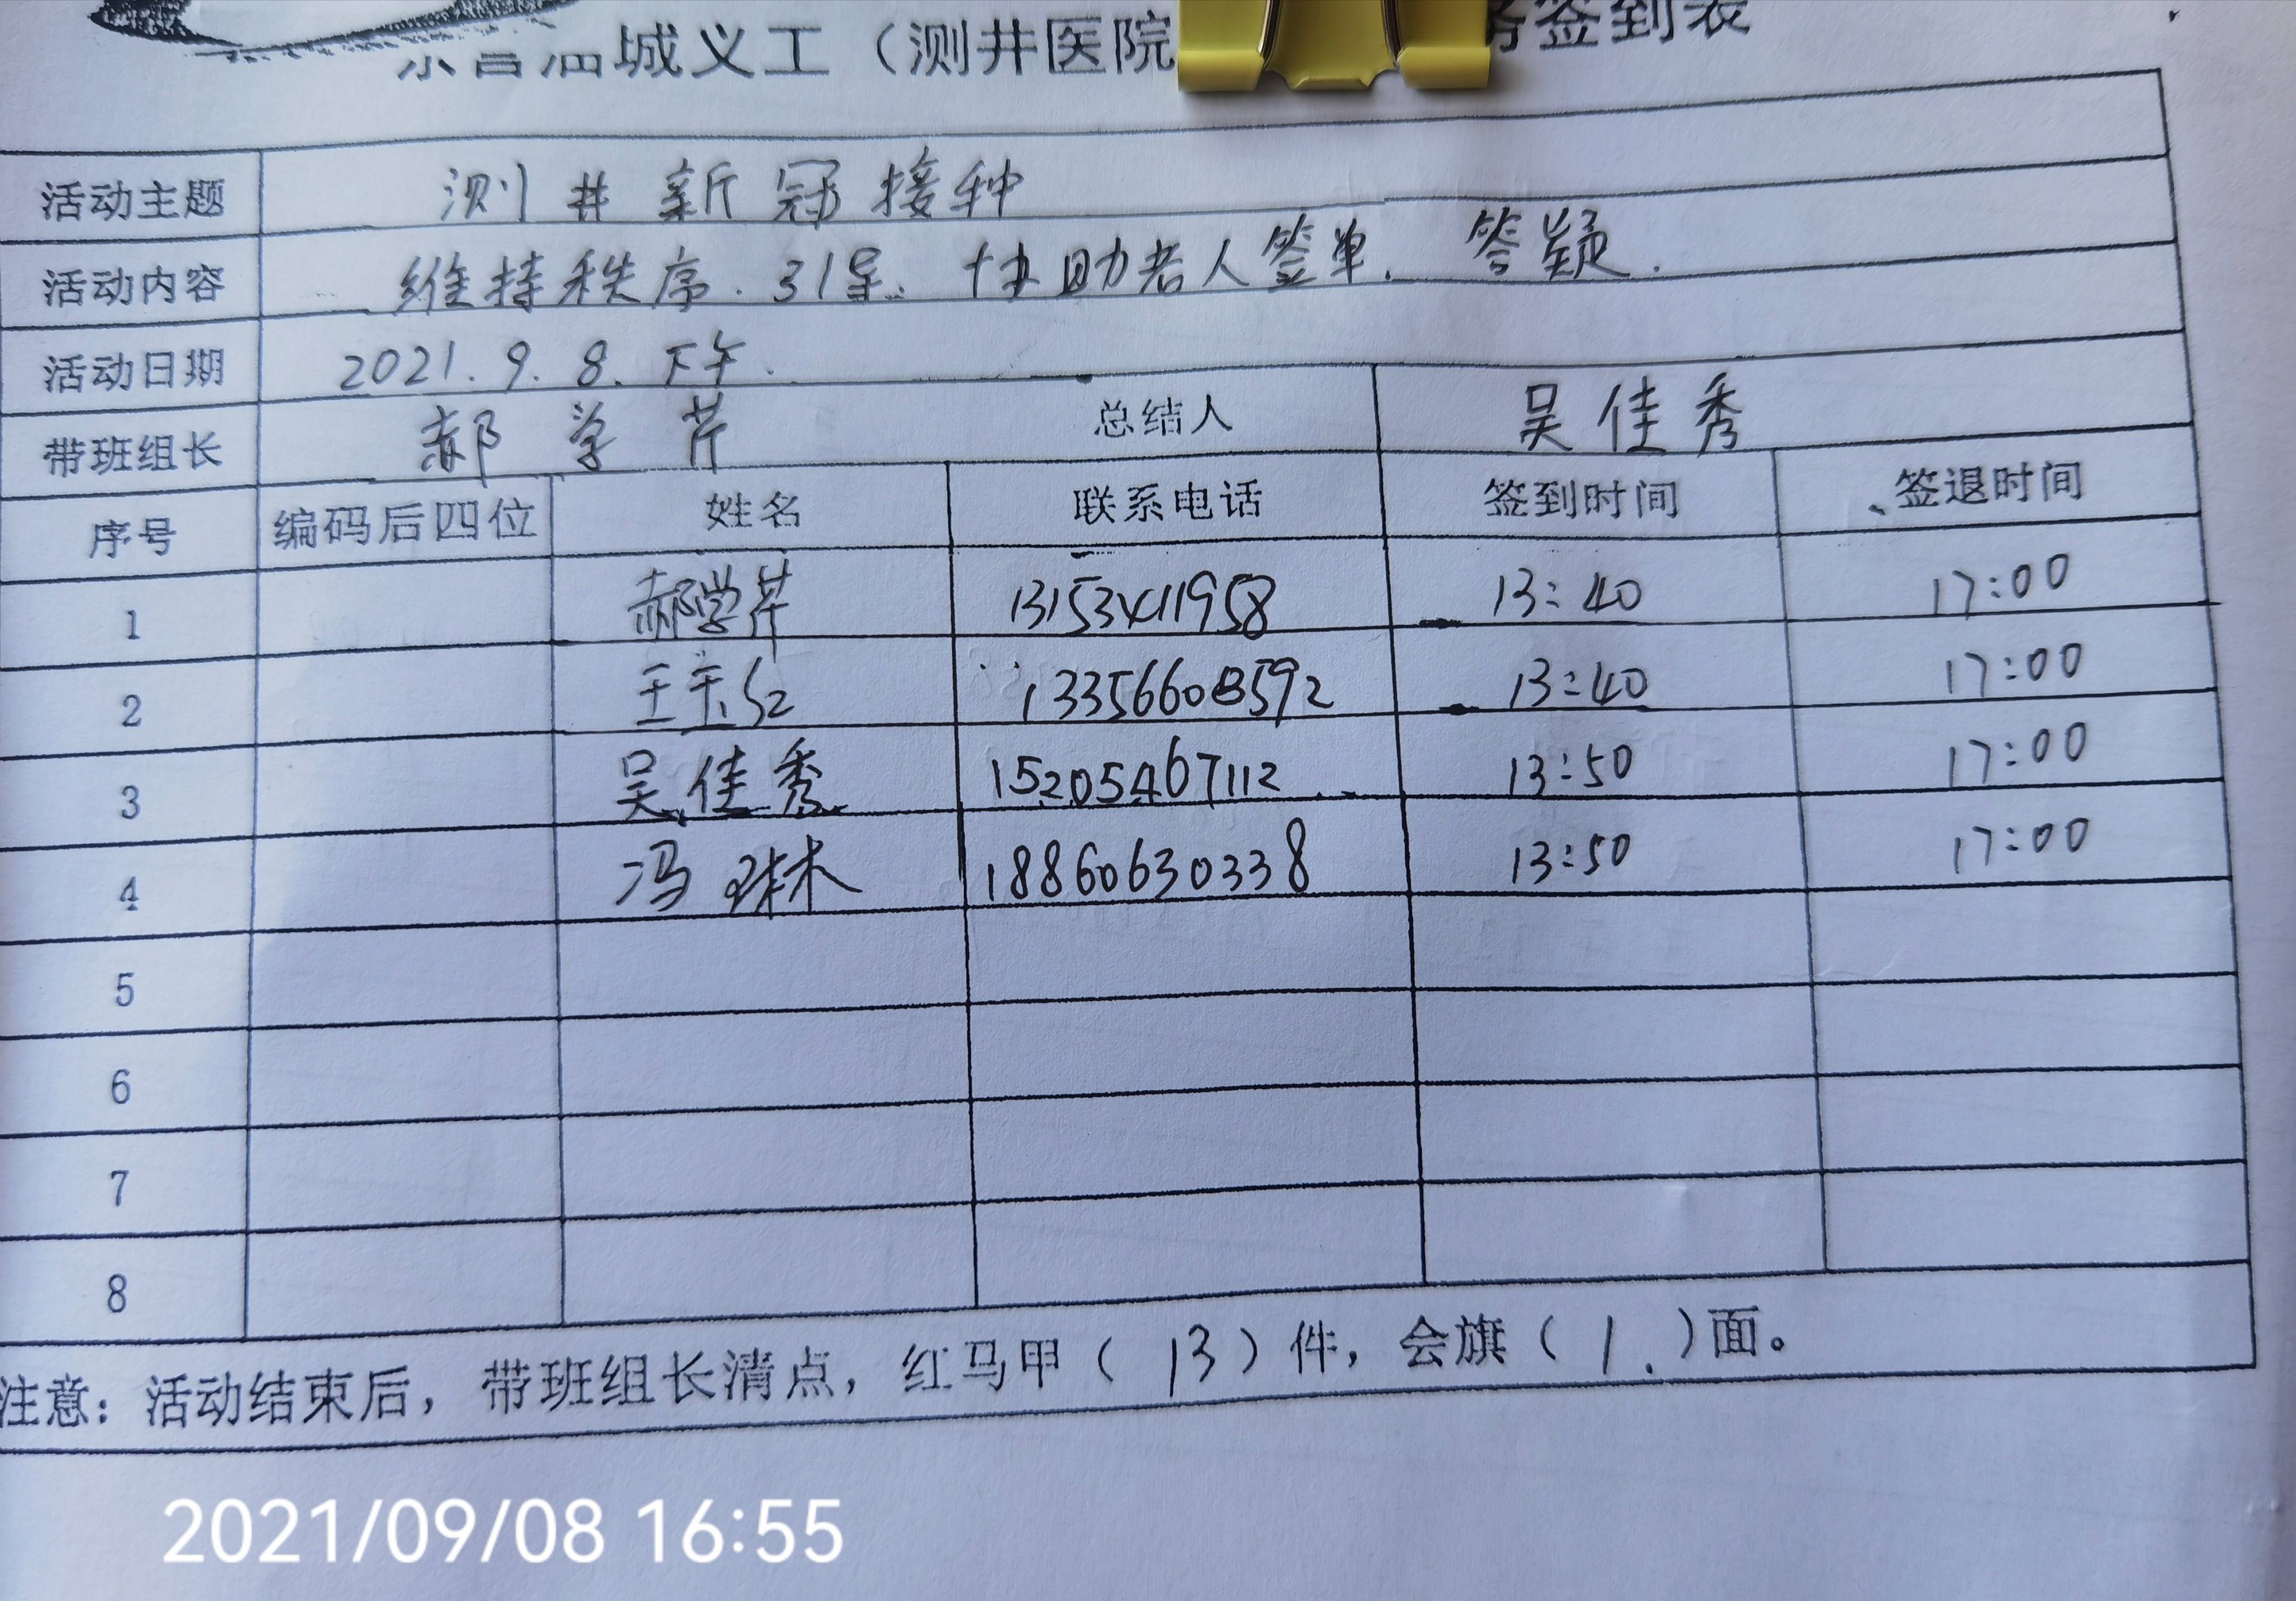 城义工（测井医院 签到表
活动主题 测井新冠接种
活动内容 维持秩序.引导.协助老人签单.答疑.
活动日期 2021.9.8.下午.
带班组长 郝学芹 总结人 吴佳秀
序号 编码后四位 姓名 联系电话 签到时间 签退时间
1 郝学芹 13153411958 13:40 17:00
2 王玉红 13:40 17:00
3 吴佳秀 15205467112 13:50 17:00
4 冯琳 18860630338 13:50 17:00
5
6
7
8
注意：活动结束后，带班组长清点，红马甲（13）件，会旗（1.）面。
2021/09/08 16:55